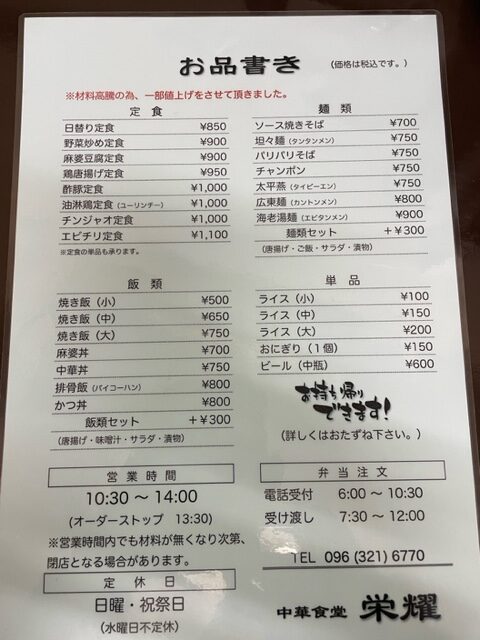 お品書き (価格は税込です。)
※材料高騰の為、一部値上げをさせて頂きました。
定食
日替り定食 ¥850
野菜炒め定食 ¥900
麻婆豆腐定食 ¥900
鶏唐揚げ定食 ¥950
酢豚定食 ¥1,000
油淋鶏定食(ユーリンチー) ¥1,000
チンジャオ定食 ¥1,000
エビチリ定食 ¥1,100
※定食の単品も承ります。
麺類
ソース焼きそば ¥700
坦々麺(タンタンメン) ¥750
パリパリそば ¥750
チャンポン ¥750
太平燕(タイピーエン) ¥750
広東麺(カントンメン) ¥800
海老湯麺(エビタンメン) ¥900
麺類セット +¥300
(唐揚げ・ご飯・サラダ・漬物)
飯類
焼き飯(小) ¥500
焼き飯(中) ¥650
焼き飯(大) ¥750
麻婆丼 ¥700
中華丼 ¥750
排骨飯(パイコーハン) ¥800
かつ丼 ¥800
飯類セット +¥300
(唐揚げ・味噌汁・サラダ・漬物)
単品
ライス(小) ¥100
ライス(中) ¥150
ライス(大) ¥200
おにぎり(1個) ¥150
ビール(中瓶) ¥600
お持ち帰り
できます!
(詳しくはおたずね下さい。)
営業時間
10:30〜14:00
(オーダーストップ 13:30)
※営業時間内でも材料が無くなり次第、
閉店となる場合があります。
定休日
日曜・祝祭日
(水曜日不定休)
弁当注文
電話受付 6:00〜10:30
受け渡し 7:30〜12:00
TEL 096 (321) 6770
中華食堂 栄耀